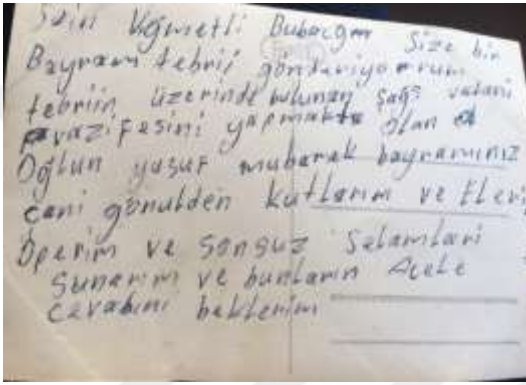 Kıymetli Babacığım Size bir
Bayram tebrii gönderiyorrum
tebriin üzerinde bulunan şahs vatani
vazifesini yapmakta olan
Oğlun yusuf mubarek bayramınız
cani gönulden kutlarım ve Eleri
Öperim ve sonsuz Selamlari
Sunarım ve bunların Acele
cevabını beklerim